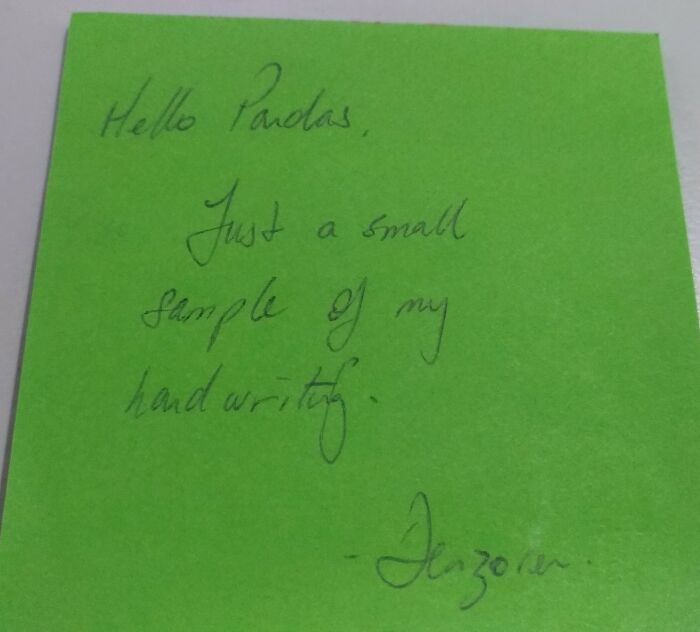 Hello Pandas,
Just a small
sample of my
handwriting.